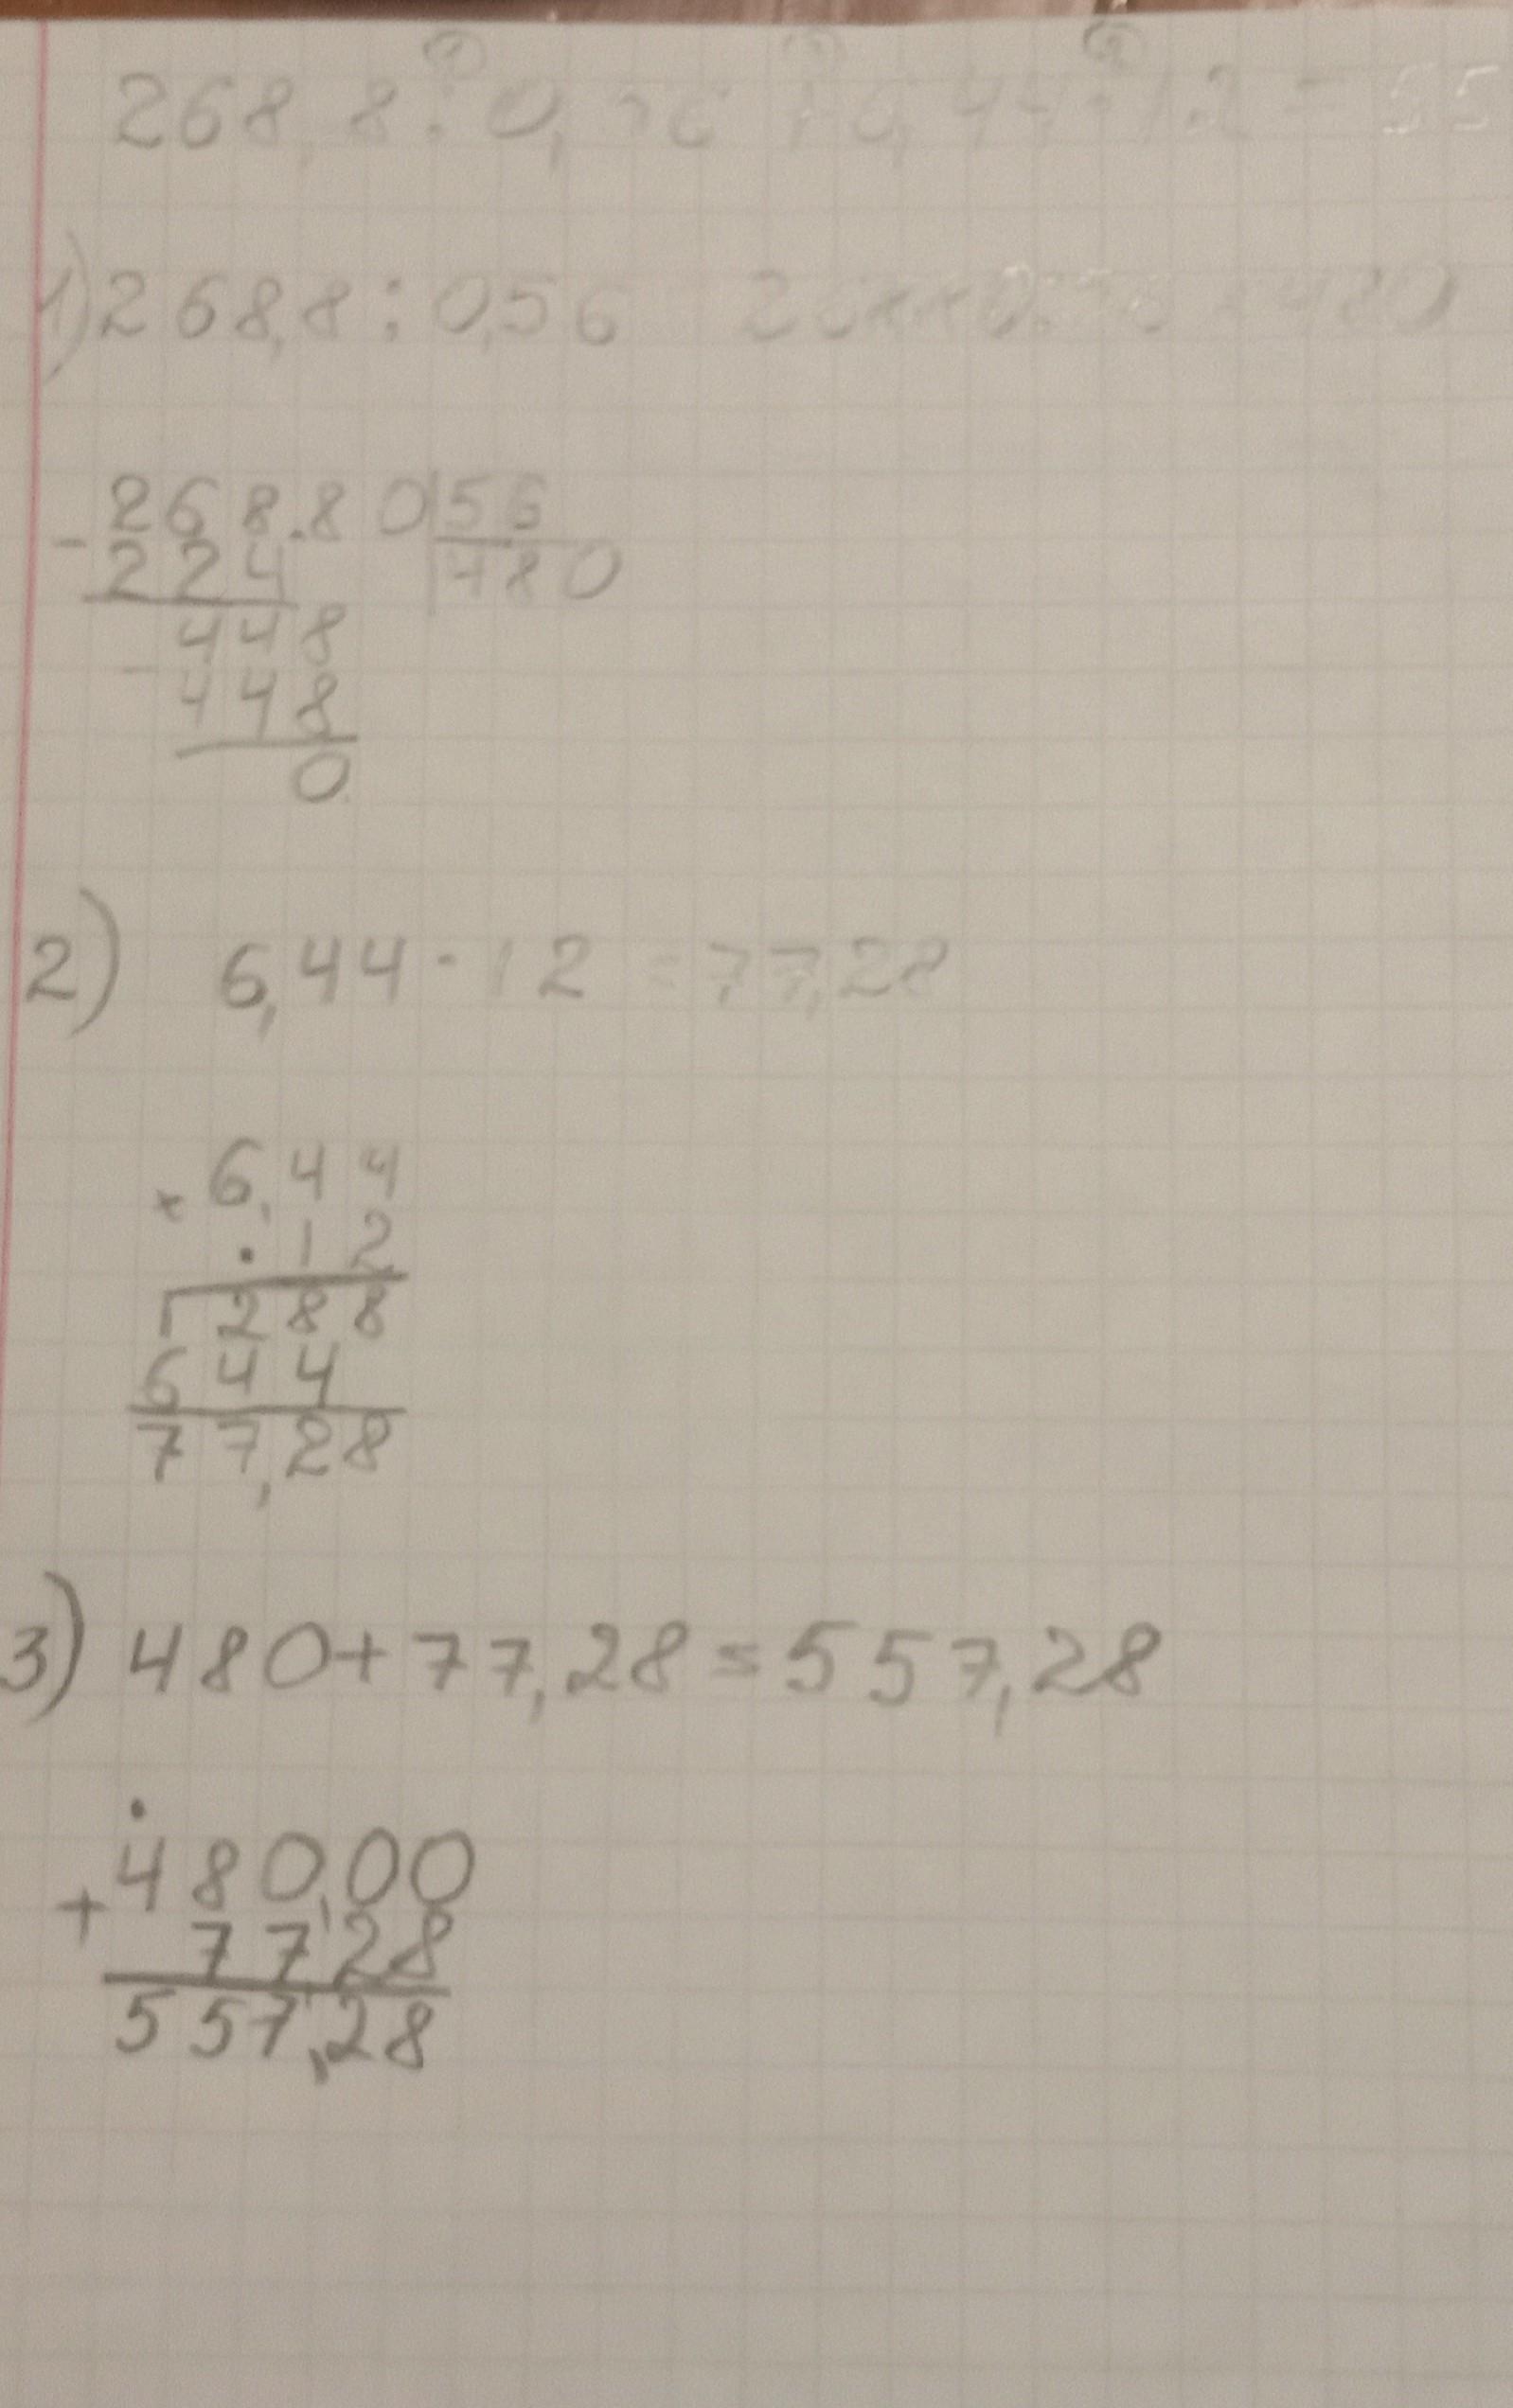 268,8:0,56+6,44·12=55
1) 268,8:0,56 268,8:0,56=480
- 268.80|56
224 |480
448
- 448
0
2) 6,44·12=77,28
× 6,44
·12
1288
644
77,28
3) 480+77,28=557,28
480,00
+ 77,28
557,28